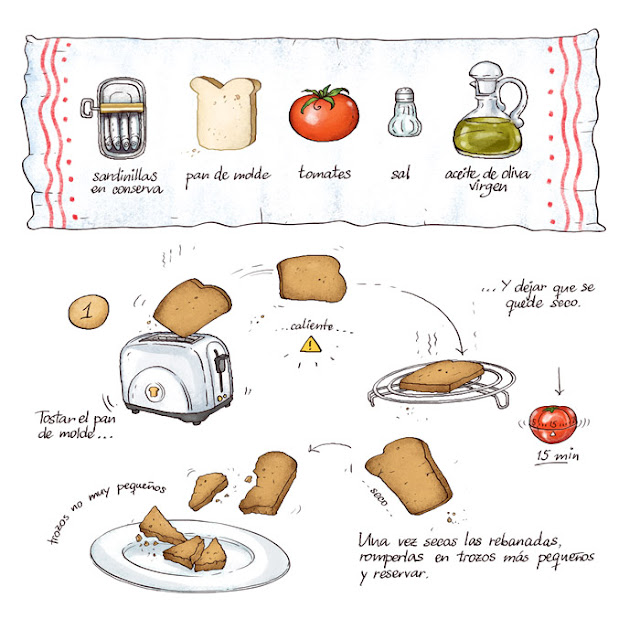 sardinillas
en conserva
pan de molde
tomates
sal
aceite de oliva
virgen
1
Tostar el pan
de molde...
...caliente...
...Y dejar que se
quede seco.
15 min
trozos no muy pequeños
...seco...
Una vez secas las rebanadas,
romperlas en trozos más pequeños
y reservar.